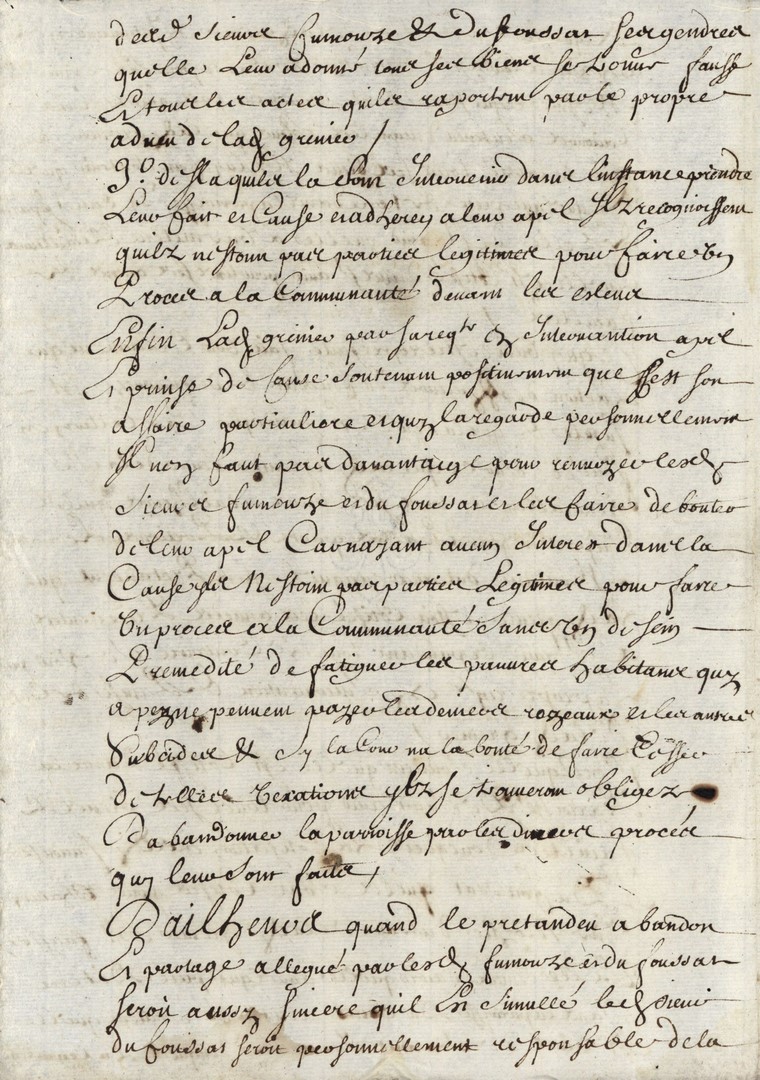 desd sieurs fumouze & du foussat ses gendres
quelle leur a donné tous ses biens se trouve fausse
Et tous les actes quils raportent par le propre
adveu de lad grenier /
3.º des la quils la font Intervenir dans linstance prendre
Leur fait et Cause et adherer a leur apel Ilz recognoissent
quilz nestoint pas parties legitimes pour faire un
Proces a la Communauté devant les esleus
Enfin Lad grenier par sa reqte en Intervantion apel
Et prinse de Cause soutenant positivement que cest son
affaire particuliere et quy la regarde personnellement
Il nen faut pas davantaige pour renvoyer lesd
sieurs fumouze et du foussat et les faire debouter
de leur apel Car nayant aucun Interest dans la
Cause Ils Nestoint pas parties Legitimes pour faire
Un proces a la Communauté sans un desein
Premedité de fatiguer les pauvres habitans quy
a peyne peuvent payer les deniers royeaux et les autres
Subcides & sy la Cour na la bonté de faire Cesser
de telles vexations ylz se trouveront obligez
Dabandonner la parroisse par les divers procés
quy leur sont faits /
Dailheurs quand le pretandeu abandon
Et partage allegué par lesd fumouze et du foussat
seroit aussy sincere quil Est simullé led sieur
du foussat seroit personnellement responsable de la